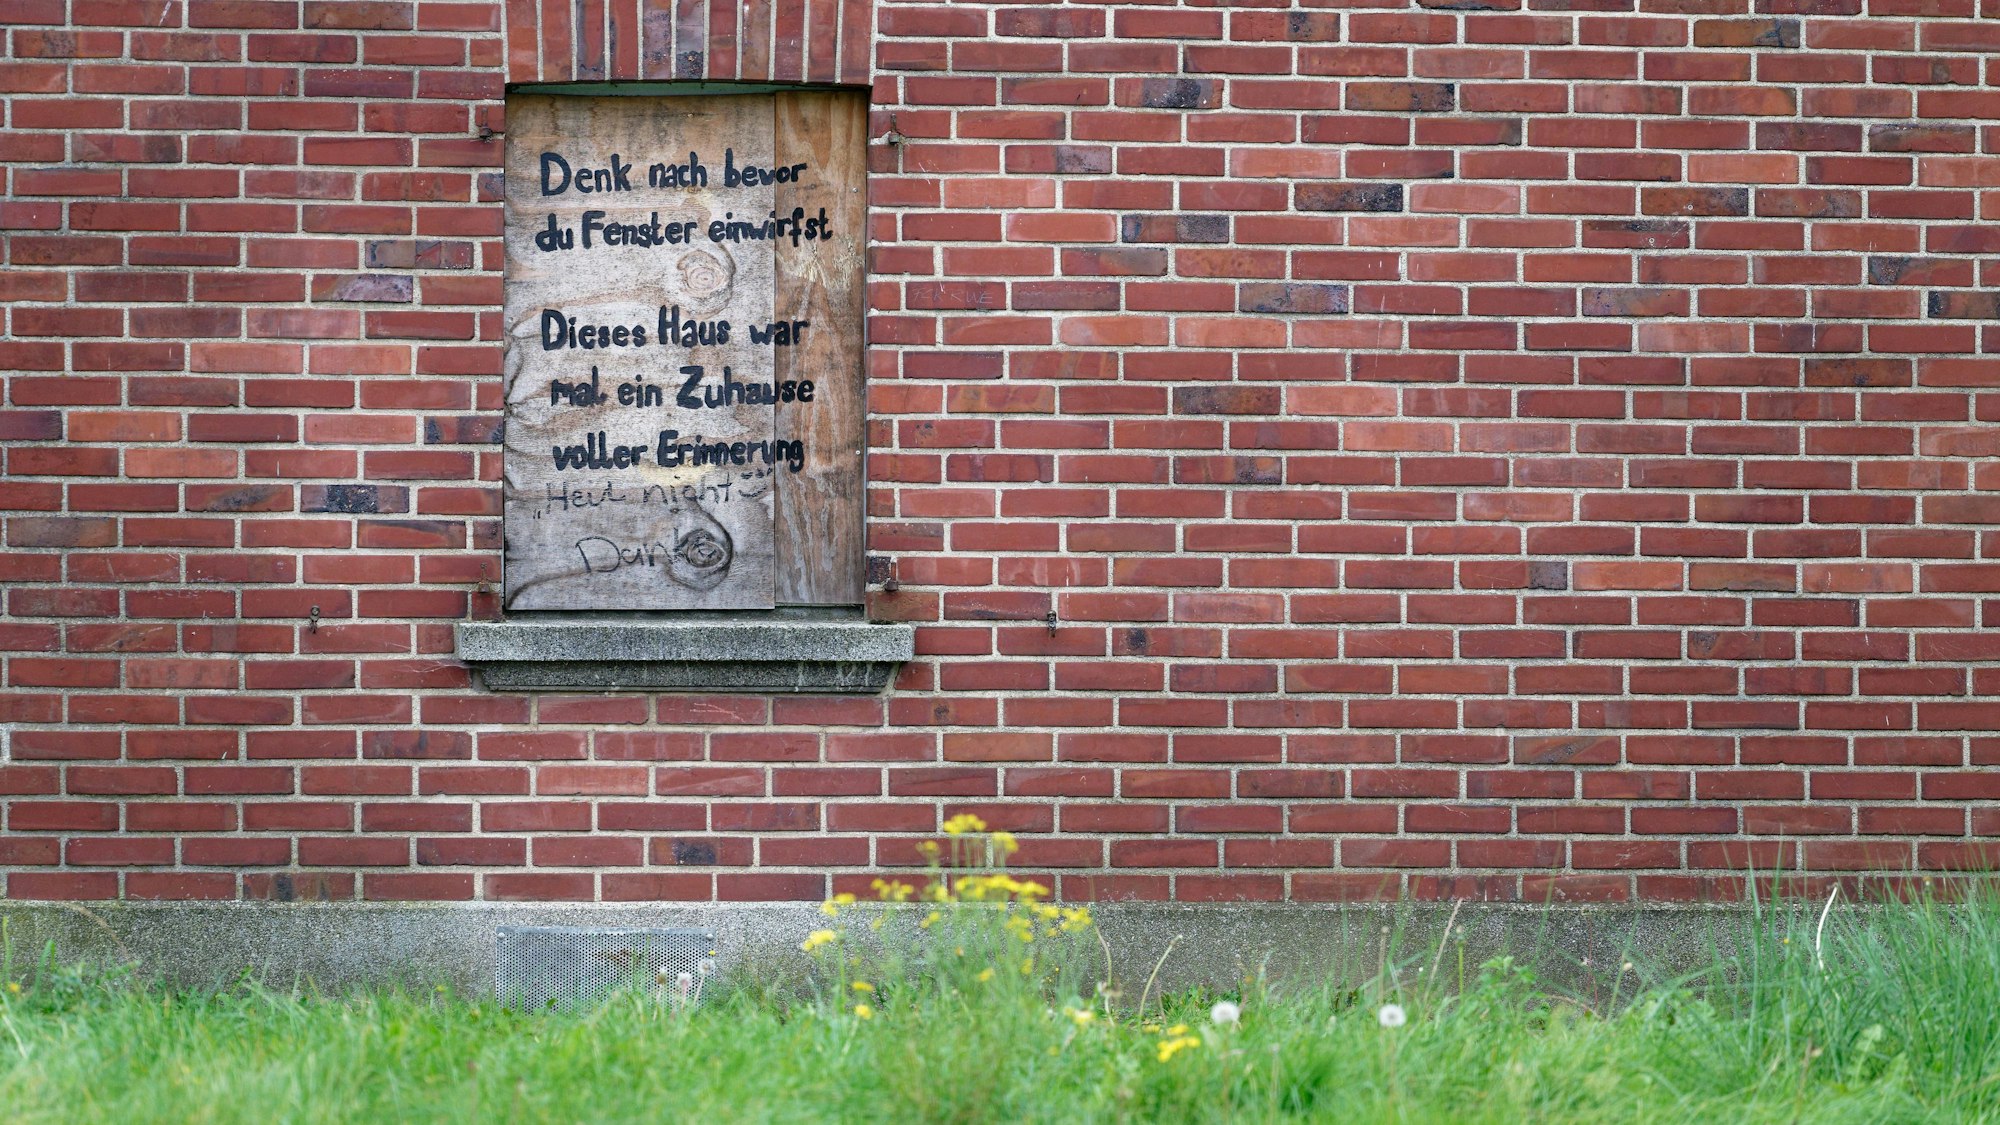 Denk nach bevor
du Fenster einwirfst
Dieses Haus war
mal ein Zuhause
voller Erinnerung
„Heul nicht"
Danke